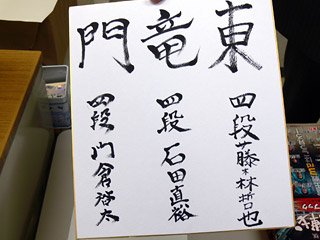 東竜門
四段 藤森哲也
四段 石田直裕
四段 門倉啓太